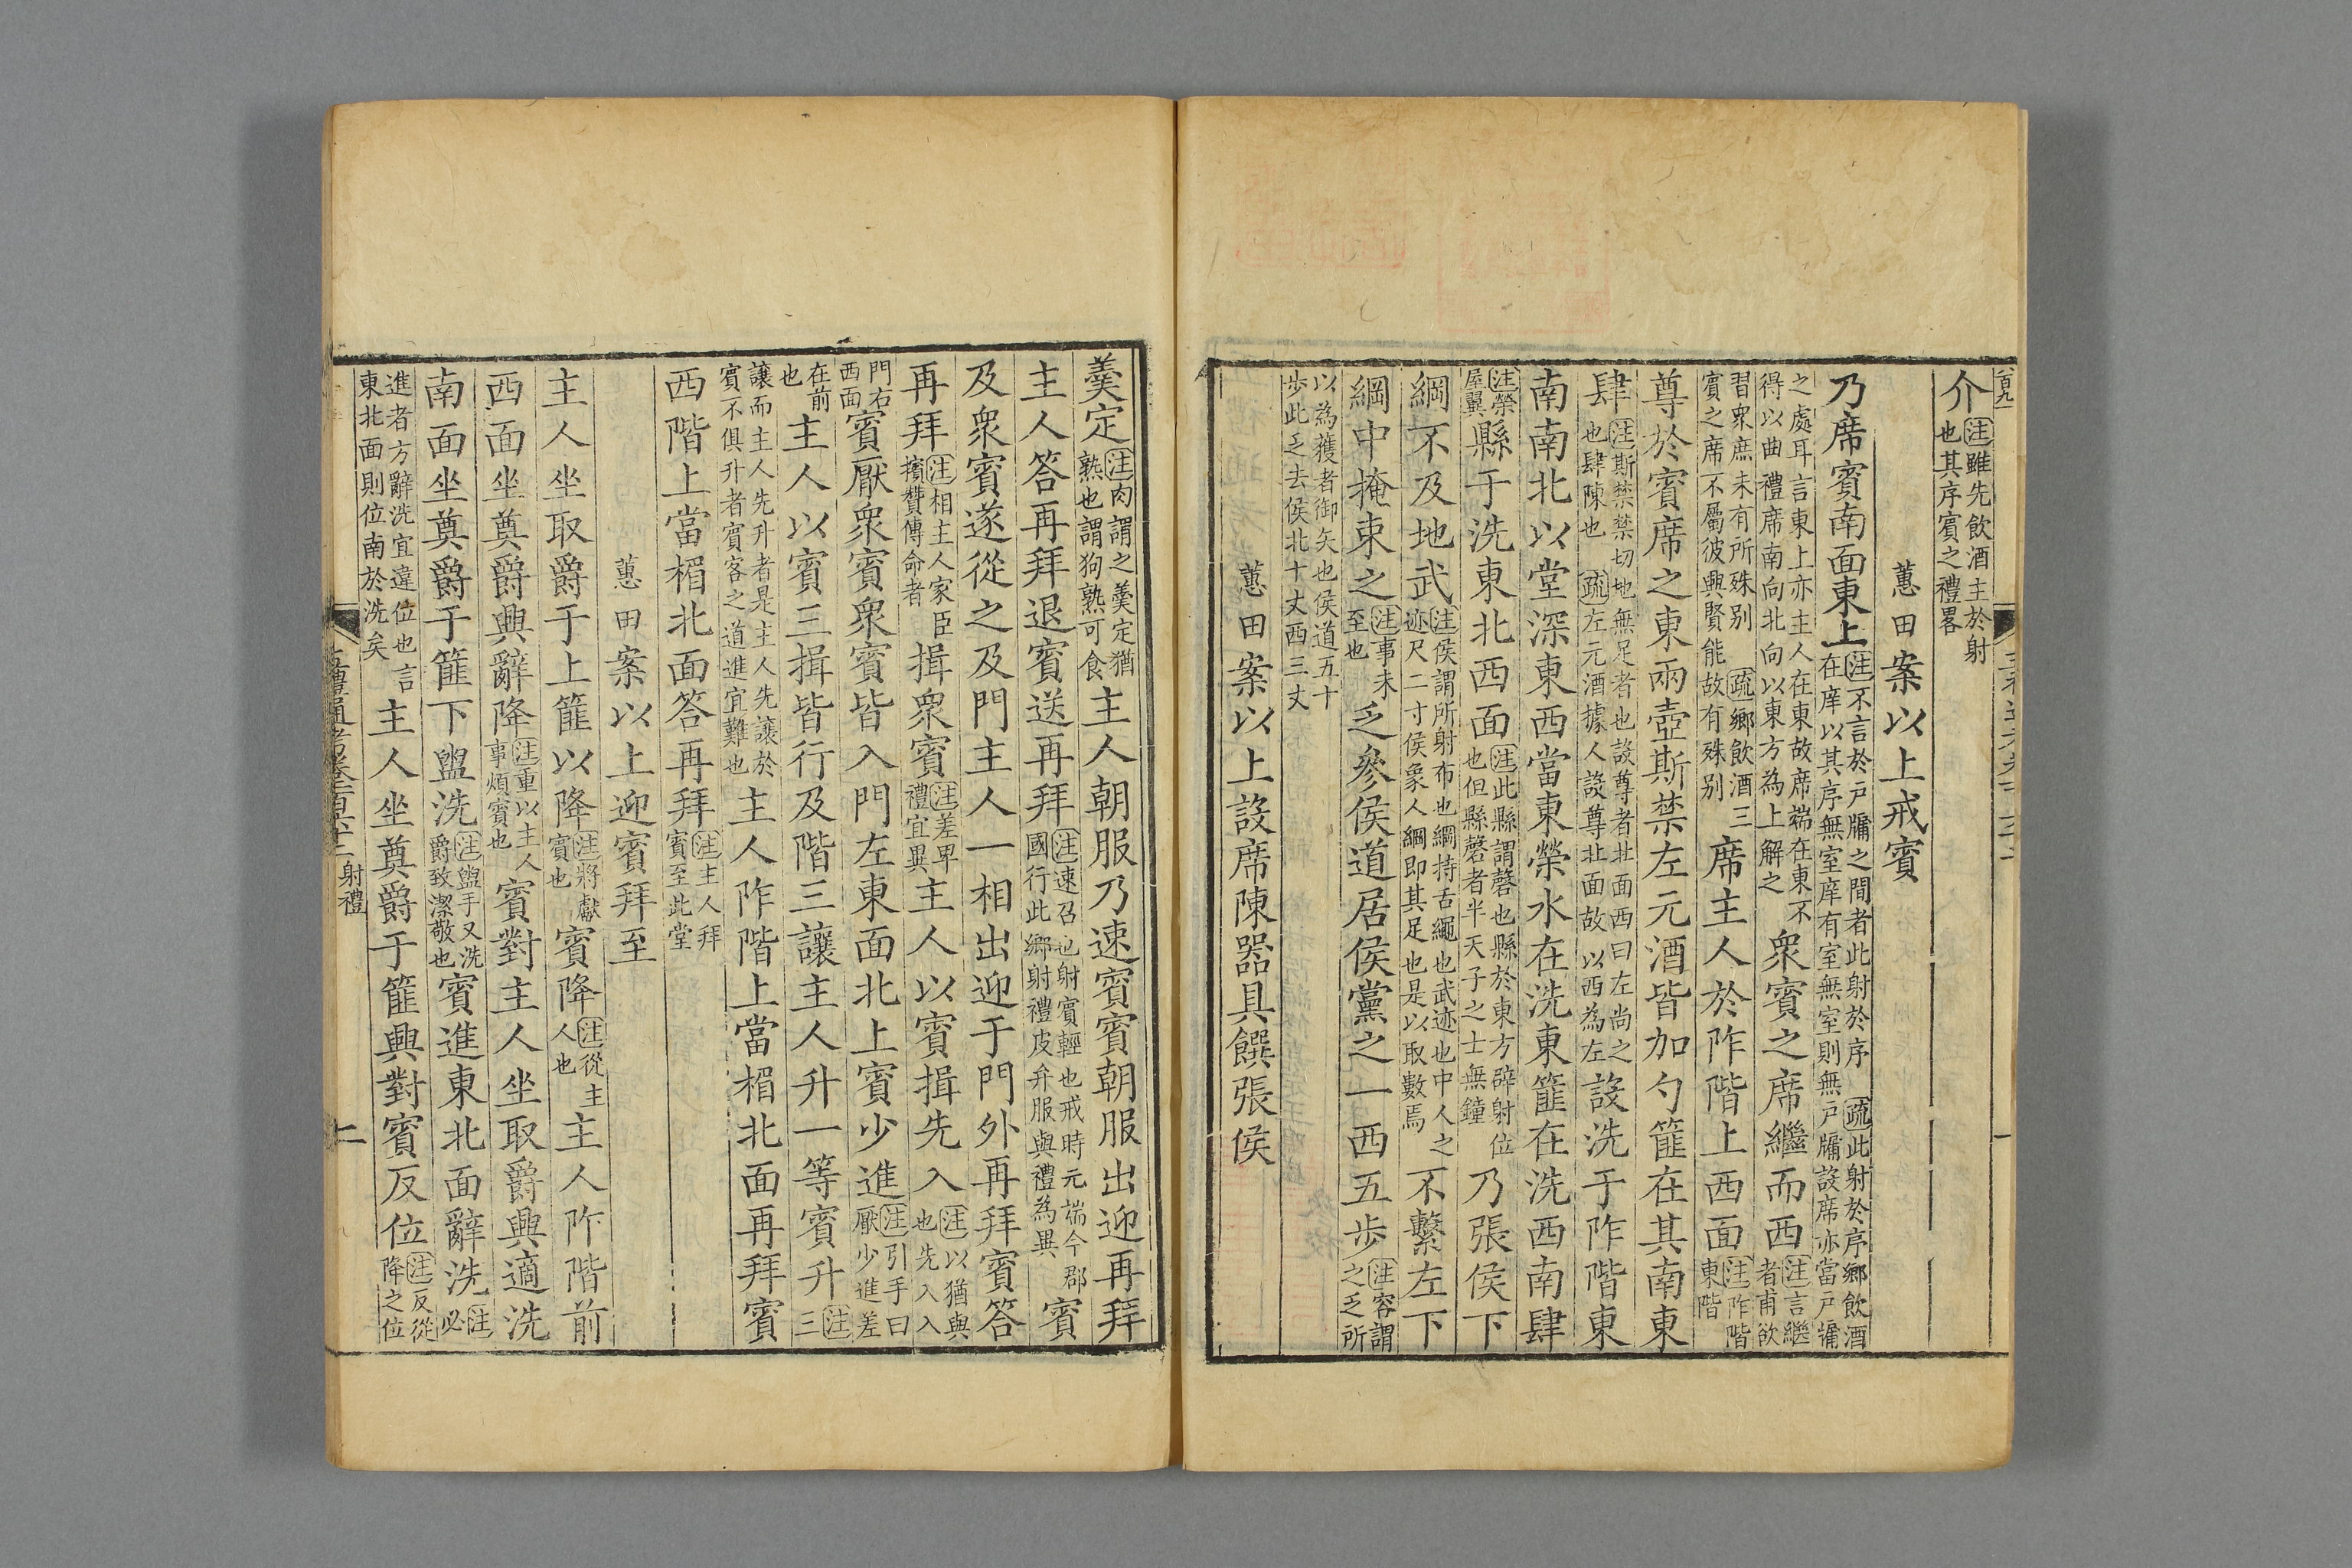 介注雖先飲酒主於射也其序賓之禮畧
蕙田案以上戒賓
乃席賓南面東上注不言於戶牖之間者此射於序 疏此射於序鄉飲酒在庠以其序無室庠有室無室則無戶牖設席亦當戶牖
之處耳言東上亦主人在東故席端在東不得以曲禮席南向北向以東方為上解之 衆賓之席繼而西注言繼者甫欲
習衆庶未有所殊别 疏鄉飲酒三賓之席不屬彼興賢能故有殊别 席主人於阼階上西面注阼階東階
尊於賓席之東兩壺斯禁左元酒皆加勺篚在其南東
肆注斯禁禁切地無足者也設尊者北面西曰左尚之也肆陳也 疏左元酒據人設尊北面故以西為左 設洗于阼階東
南南北以堂深東西當東榮水在洗東篚在洗西南肆
注榮屋翼 縣于洗東北西面注此縣謂磬也縣於東方辟射位也但縣磬者半天子之士無鐘 乃張侯下
綱不及地武注侯謂所射布也綱持舌繩也武迹也中人之迹尺二寸侯象人綱即其足也是以取數焉 不繫左下
綱中掩束之注事未至也 乏參侯道居侯黨之一西五歩注容謂之乏所
以為獲者御矢也侯道五十歩此乏去侯北十丈西三丈
蕙田案以上設席陳器具饌張侯
羹定注肉謂之羹定猶熟也謂狗熟可食 主人朝服乃速賓賓朝服出迎再拜
主人答再拜退賓送再拜注速召也射賓輕也戒時元端今郡國行此鄉射禮皮弁服與禮為異 賓
及衆賓遂從之及門主人一相出迎于門外再拜賓答
再拜注相主人家臣擯贊傳命者 揖衆賓注差卑禮宜異 主人以賓揖先入注以猶與也先入入
門右西面 賓厭衆賓衆賓皆入門左東面北上賓少進注引手曰厭少進差
在前也 主人以賓三揖皆行及階三讓主人升一等賓升注三
讓而主人先升者是主人先讓於賓不俱升者賓客之道進宜難也 主人阼階上當楣北面再拜賓
西階上當楣北面答再拜注主人拜賓至此堂
蕙田案以上迎賓拜至
主人坐取爵于上篚以降注將獻賓也 賓降注從主人也 主人阼階前
西面坐奠爵興辭降注重以主人事煩賓也 賓對主人坐取爵興適洗
南面坐奠爵于篚下盥洗注盥手又洗爵致潔敬也 賓進東北面辭洗注必
進者方辭洗宜違位也言東北面則位南於洗矣 主人坐奠爵于篚興對賓反位注反從降之位
射禮